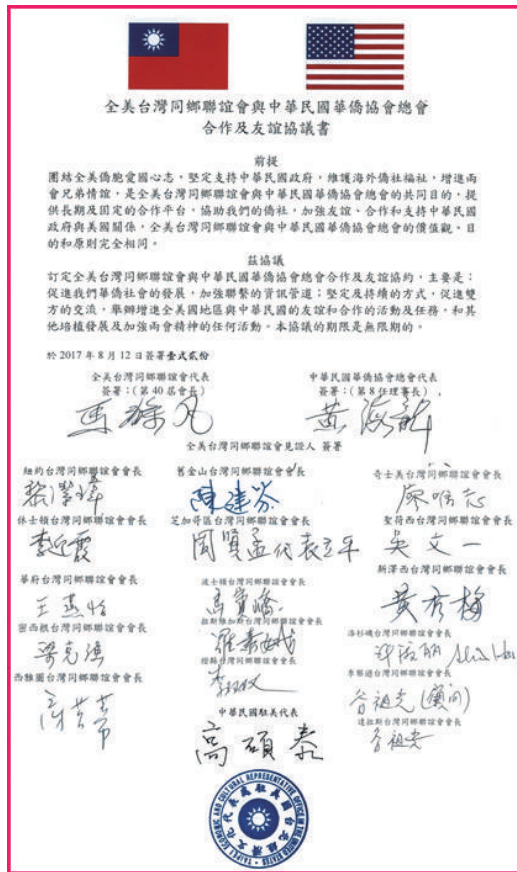 全美台灣同鄉聯誼會與中華民國華僑協會總會
合作及友誼協議書
前提
團結全美僑胞愛國心志，堅定支持中華民國政府，維護海外僑社福祉，增進兩
會兄弟情誼，是全美台灣同鄉聯誼會與中華民國華僑協會總會的共同目的，提
供長期及固定的合作平台，協助我們的僑社，加強友誼、合作和支持中華民國
政府與美國關係，全美台灣同鄉聯誼會與中華民國華僑協會總會的價值觀、目
的和原則完全相同。
茲協議
訂定全美台灣同鄉聯誼會與中華民國華僑協會總會合作及友誼協約，主要是：
促進我們華僑社會的發展，加強聯繫的資訊管道；堅定及持續的方式，促進雙
方的交流，舉辦增進全美國地區與中華民國的友誼和合作的活動及任務，和其
他培植發展及加強兩會精神的任何活動。本協議的期限是無限期的。
於 2017 年 8 月 12 日簽署壹式貳份
全美台灣同鄉聯誼會代表 中華民國華僑協會總會代表
簽署：(第 40 屆會長) 簽署：(第 8 任理事長)
黃海龍
全美台灣同鄉聯誼會見證人 簽署
紐約台灣同鄉聯誼會會長 舊金山台灣同鄉聯誼會會長 奇士美台灣同鄉聯誼會會長
黎潔瑋 陳建芬
休士頓台灣同鄉聯誼會會長 芝加哥區台灣同鄉聯誼會會長 聖荷西台灣同鄉聯誼會會長
李迎霞 周賢孟代表 吳文一
華府台灣同鄉聯誼會會長 波士頓台灣同鄉聯誼會會長 新澤西台灣同鄉聯誼會會長
王燕怡 黃秀梅
密西根台灣同鄉聯誼會會長 拉斯維加斯台灣同鄉聯誼會會長 洛杉磯台灣同鄉聯誼會會長
梁克強
西雅圖台灣同鄉聯誼會會長 橙縣台灣同鄉聯誼會會長
谷祖光(顧問)
中華民國駐美代表 達拉斯台灣同鄉聯誼會會長
高碩泰 谷祖光
駐美國台北經濟文化代表處
TAIPEI ECONOMIC AND CULTURAL REPRESENTATIVE OFFICE IN THE UNITED STATES